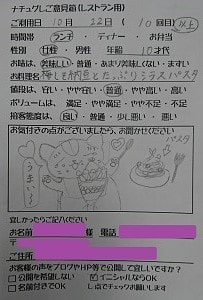 ナチュグレご意見箱(レストラン用)
ご利用日 10月 22日 (10回目)以上
時間帯 ランチ・ディナー・お弁当
性別 女性・男性 年齢 10才代
お味は、美味しい・普通・あまり美味しくない・まずい
お料理名 梅しそ納豆とたっぷりシラスパスタ
値段は、安い・やや安い・普通・やや高い・高い
ボリュームは、満足・やや満足・やや不足・不足
接客態度は、良い・普通・少し悪い・悪い
お気付きの点がございましたら、お聞かせください
うまーい!
宜しかったらご記入ください
お名前 様 電話
〒
ご住所
お客様の声をブログやHP等で公開して宜しいですか?
□公開を希望しない ☑イニシャルならOK
□名前付きでOK し点でチェックお願いします